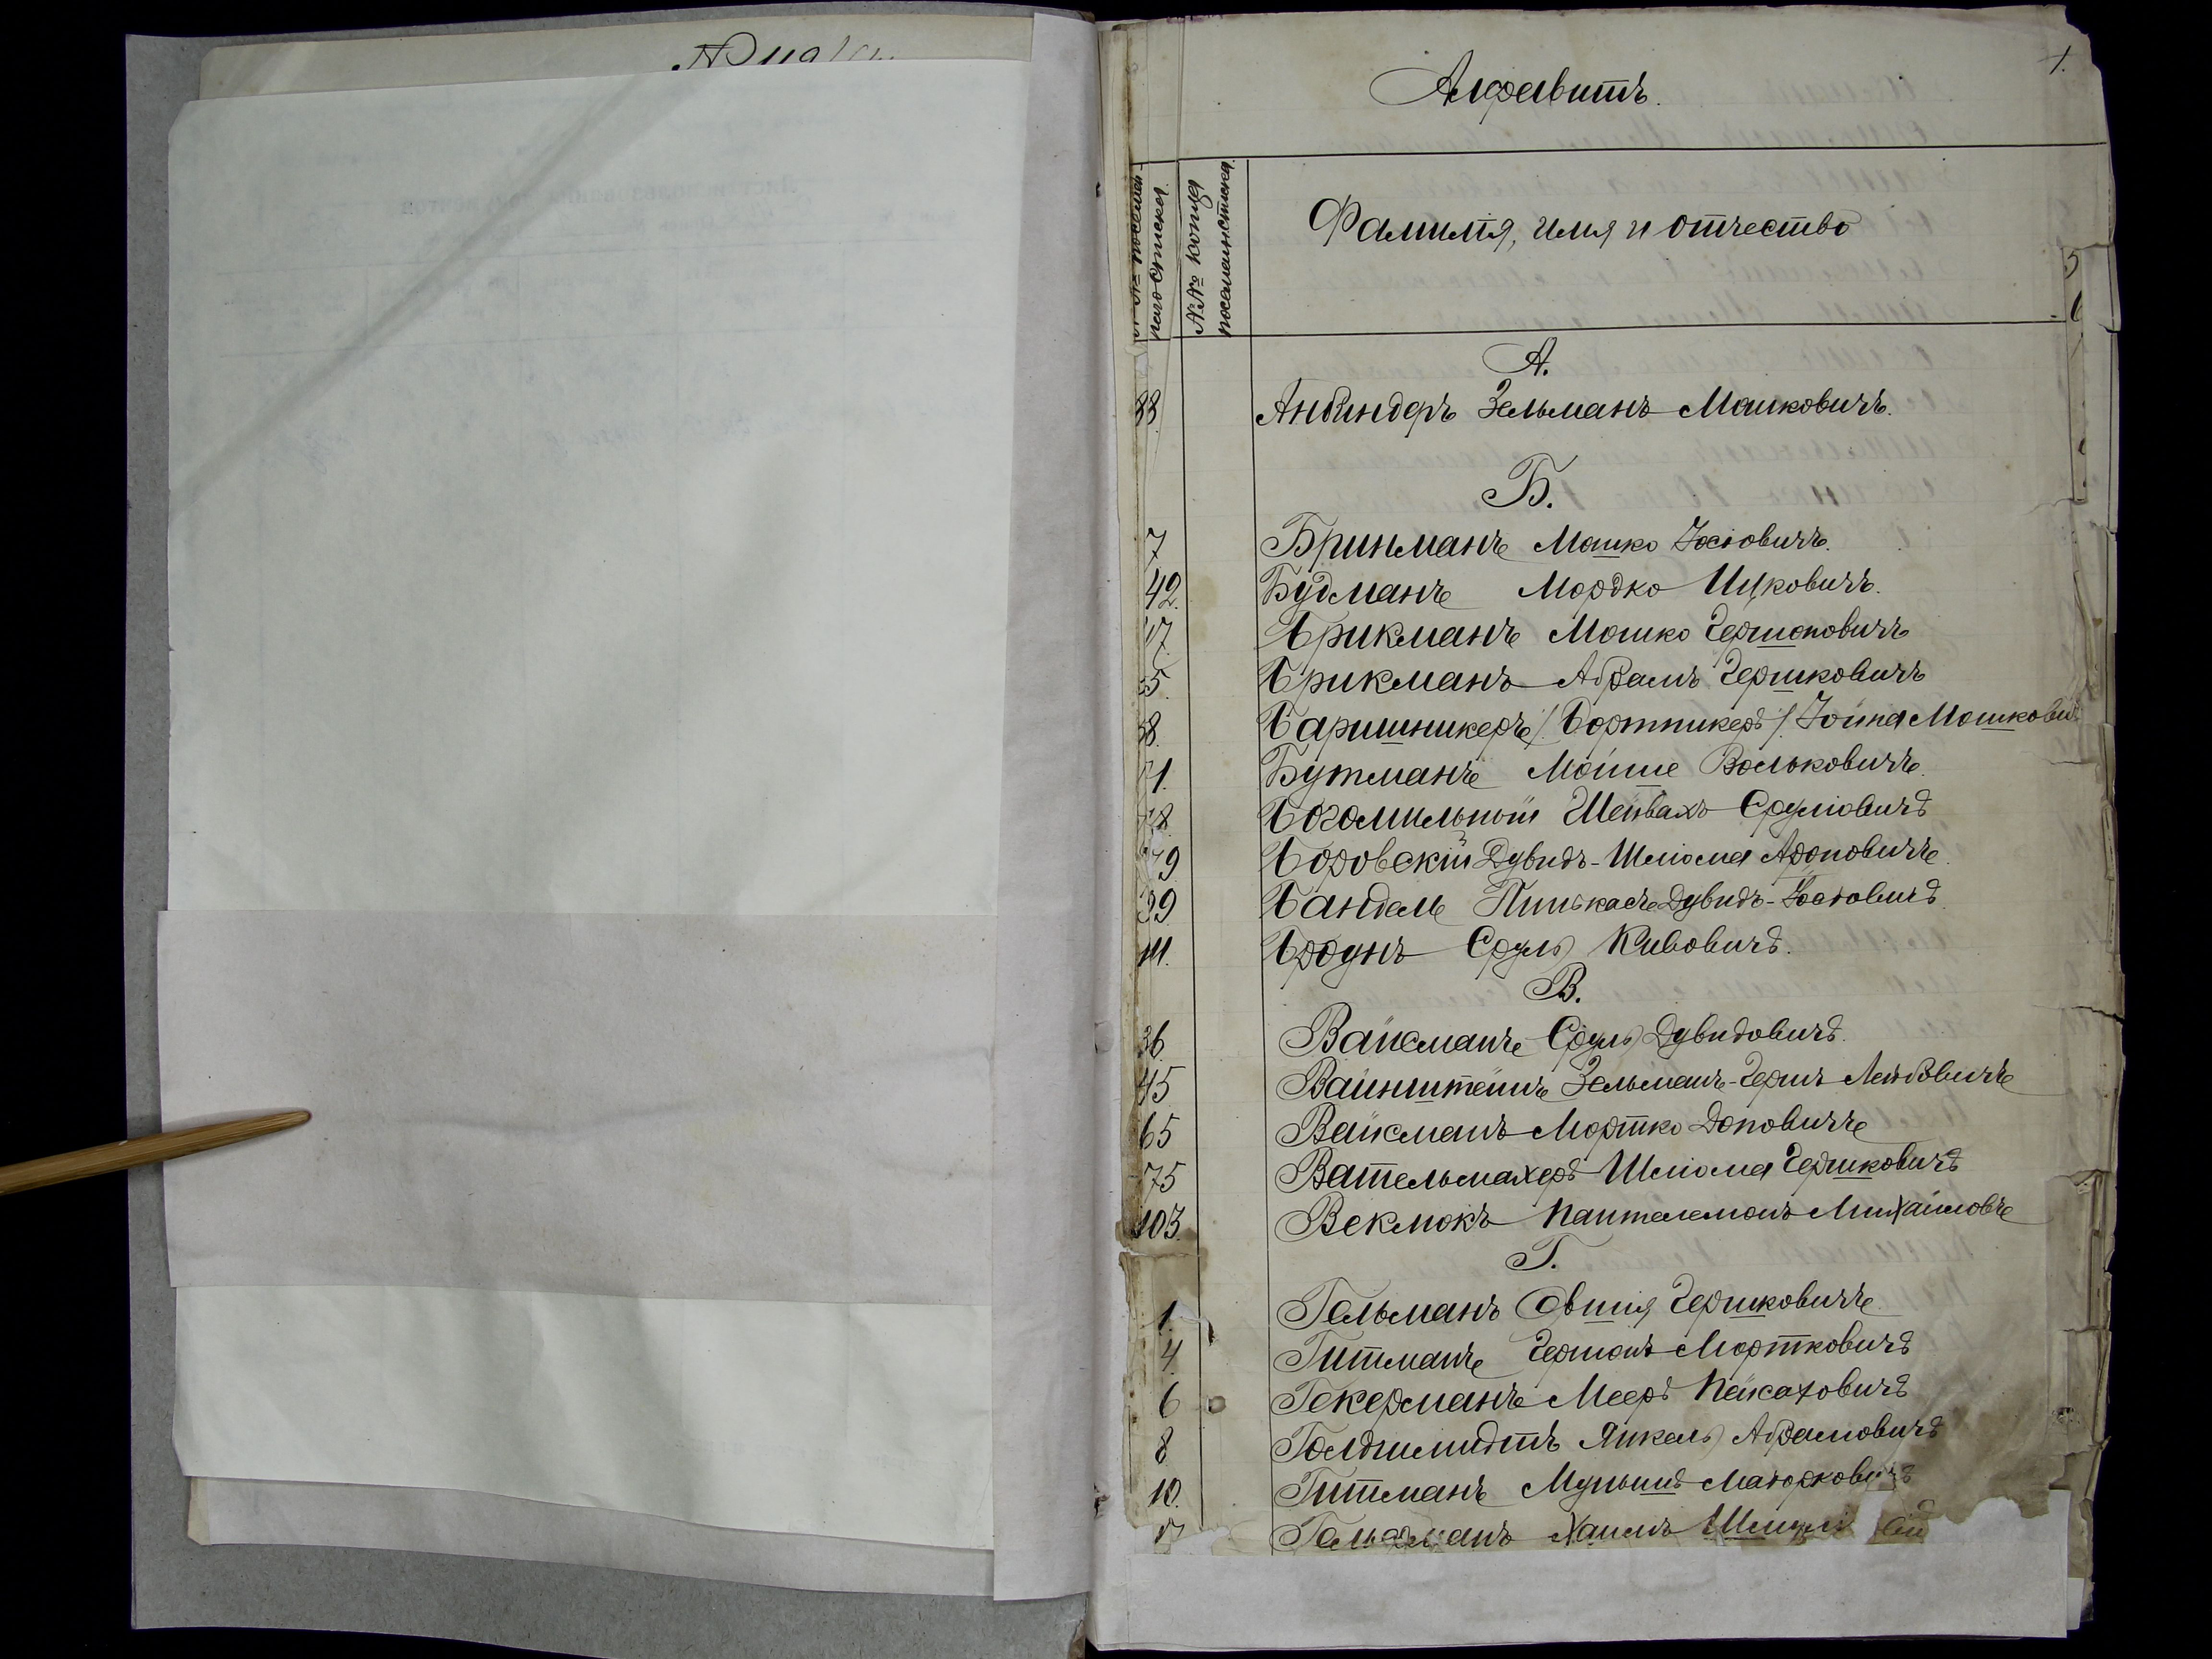 1.
Алфавитъ.
№№ посемей-
наго списка.
№№ когда
Фамилія, имя и отчество
А.
88 Анбиндеръ Зельманъ Машковичъ.
Б.
7 Бринманъ Мошко Іосіовичъ.
42. Будманъ Мордко Ицковичъ.
17. Брикманъ Мошко Гершоновичъ
55. Брикманъ Абрамъ Гершковичъ
58. Баришникеръ /Бортникеръ/ Іойна Мошкович
71. Бутманъ Мойше Вольковичъ.
78. Богомильный Шейвахъ Сруліовичъ
79 Боровскій Дувидъ-Шліома Ароновичъ.
99 Бандель Пинькасъ Дувидъ-Іосіовичъ
111. Броунъ Сруль Кивовичъ.
В.
36. Вайсманъ Сруль Дувидовичъ.
45 Вайнштейнъ Зельманъ-Гершъ Лейбовичъ
65 Вайсманъ Мортко Доновичъ
75 Вательмахеръ Шліома Гершковичъ
103. Векслюкъ Пантелемонъ Михайловъ
Г.
1. Гельманъ Овшія Гершковичъ
4. Гитманъ Гершонъ Мортковичъ
6 Гекерманъ Мееръ Пейсаховичъ
8 Голдшмидтъ Янкель Абрамовичъ
10. Гитманъ Муньишъ
17 Хаимъ